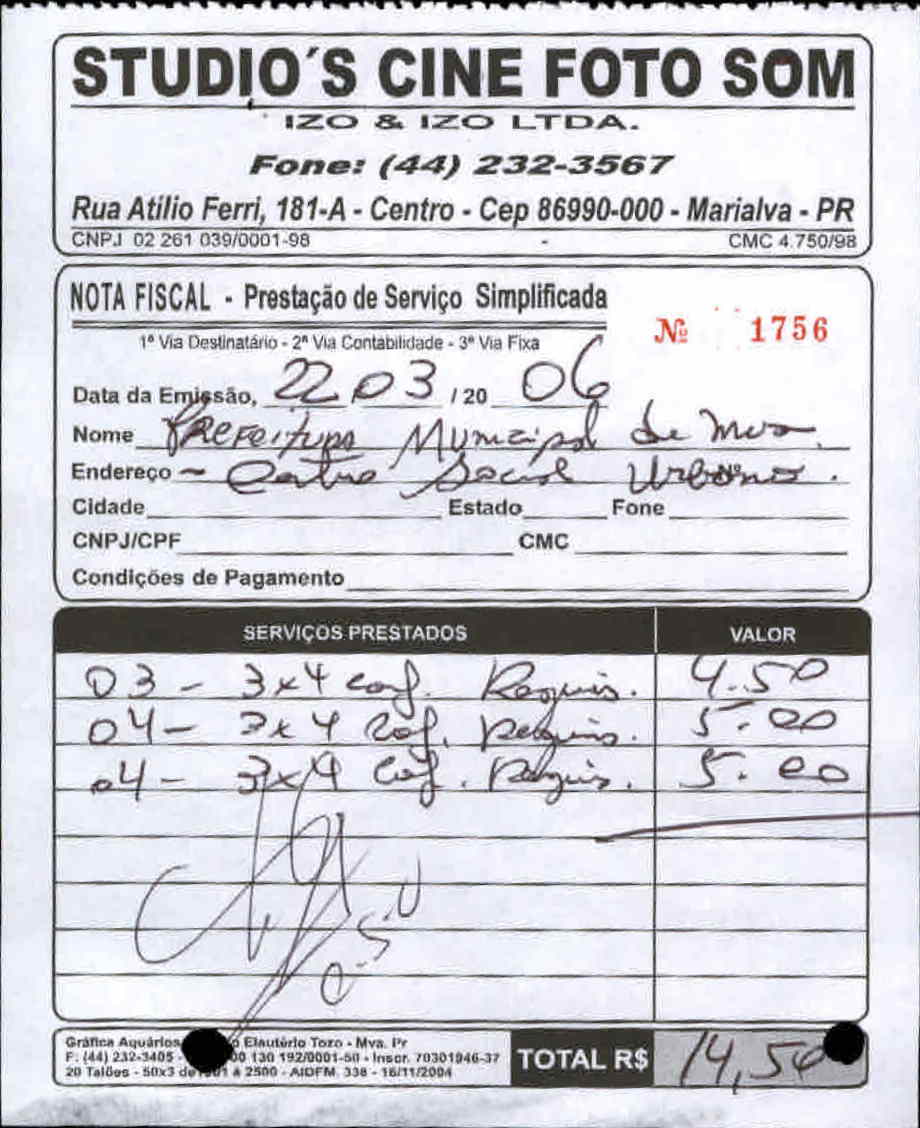 STUDIO'S CINE FOTO SOM
IZO & IZO LTDA.
Fone: (44) 232-3567
Rua Atilio Ferri, 181-A - Centro - Cep 86990-000 - Marialva - PR
CNPJ 02 261 039/0001-98 CMC 4.750/98
NOTA FISCAL - Prestação de Serviço Simplificada
Nº 1756
1ª Via Destinatário - 2ª Via Contabilidade - 3ª Via Fixa
Data da Emissão, 22 03 /20 06
Nome Prefeitura Municipal de Mva.
Endereço - Centro Social Urbano.
Cidade Estado Fone
CNPJ/CPF CMC
Condições de Pagamento
SERVIÇOS PRESTADOS VALOR
03 - 3x4 4.50
04 - 3x4 5.00
04 - 3x4 5.00
C.S.U
Gráfica Aquários Elautério Tozo - Mva. Pr
F: (44) 232-3405 - 00 130 192/0001-50 - Inscr. 70301946-37
20 Talões - 50x3 de 1501 à 2500 - AIDFM. 338 - 16/11/2004
TOTAL R$ 14,50